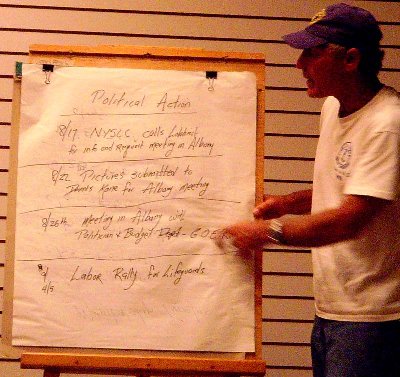 Political Action
8/17 NYSLC calls
for info and Request meeting in Albany
8/22 Pictures submitted to
Dennis Kane for Albany meeting
8/26th meeting in Albany with
Politician & Budget Dept -
Labor Rally for Lifeguards